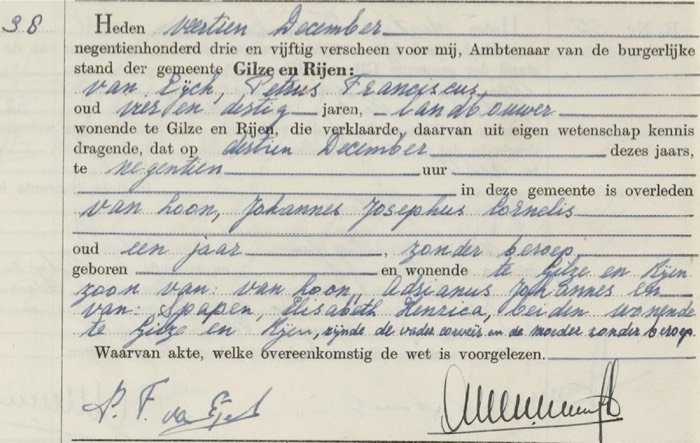 38
Heden veertien December
negentienhonderd drie en vijftig verscheen voor mij, Ambtenaar van de burgerlijke
stand der gemeente Gilze en Rijen:
van Eijck, Petrus Franciscus,
oud vier en dertig jaren, landbouwer
wonende te Gilze en Rijen, die verklaarde, daarvan uit eigen wetenschap kennis
dragende, dat op dertien December dezes jaars,
te negentien uur
in deze gemeente is overleden
van Loon, Johannes Josephus Cornelis
oud een jaar, zonder beroep
geboren en wonende te Gilze en Rijen
zoon van: van Loon, Adrianus Johannes en
van: Spapen, Elisabeth Henrica, beiden wonende
te Gilze en Rijen, zijnde de vader corveeër en de moeder zonder beroep.
Waarvan akte, welke overeenkomstig de wet is voorgelezen.
P. F. van Eijck